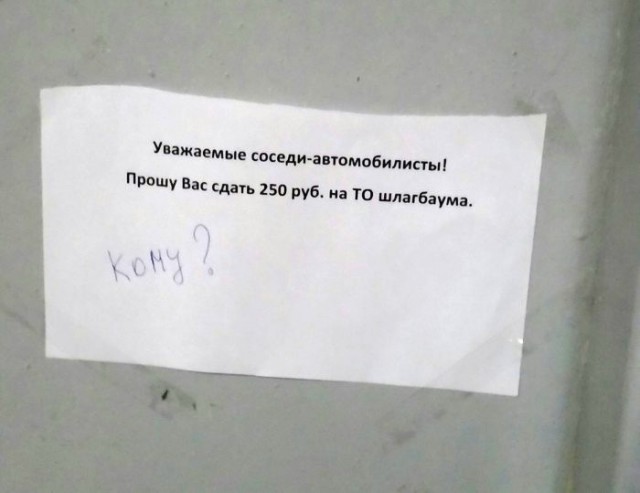 Уважаемые соседи-автомобилисты!
Прошу Вас сдать 250 руб. на ТО шлагбаума.
кому?